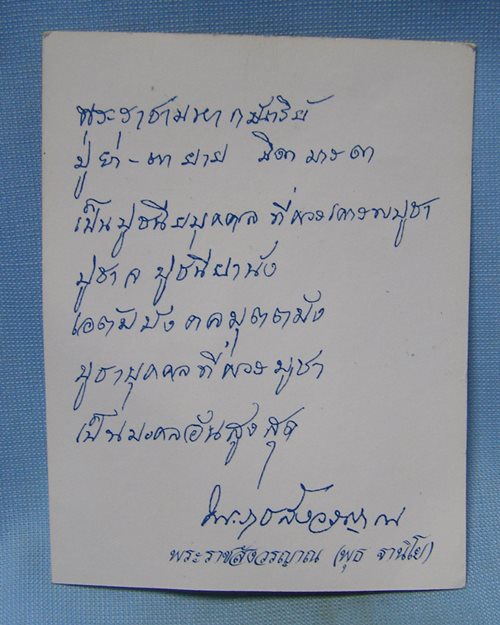 พระราชามหากษัตริย์
ปู่ย่า-ตายาย บิดามารดา
เป็นปูชนียบุคคลที่ควรเคารพบูชา
ปูชา จ ปูชนียานัง
เอตัมมังคลมุตตมัง
บูชาบุคคลที่ควรบูชา
เป็นมงคลอันสูงสุด
พระราชสังวรญาณ
พระราชสังวรญาณ (พุธ ฐานิโย)